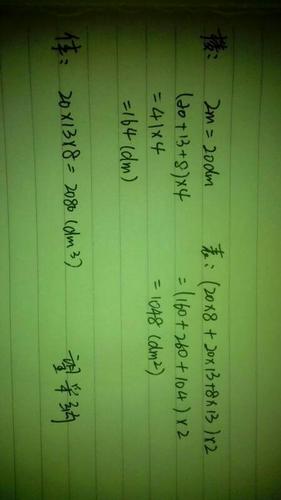 棱: 2m=20dm
(20+13+8)×4
=41×4
=164(dm)
表: (20×8+20×13+8×13)×2
=(160+260+104)×2
=1048(dm²)
体: 20×13×8=2080(dm³)